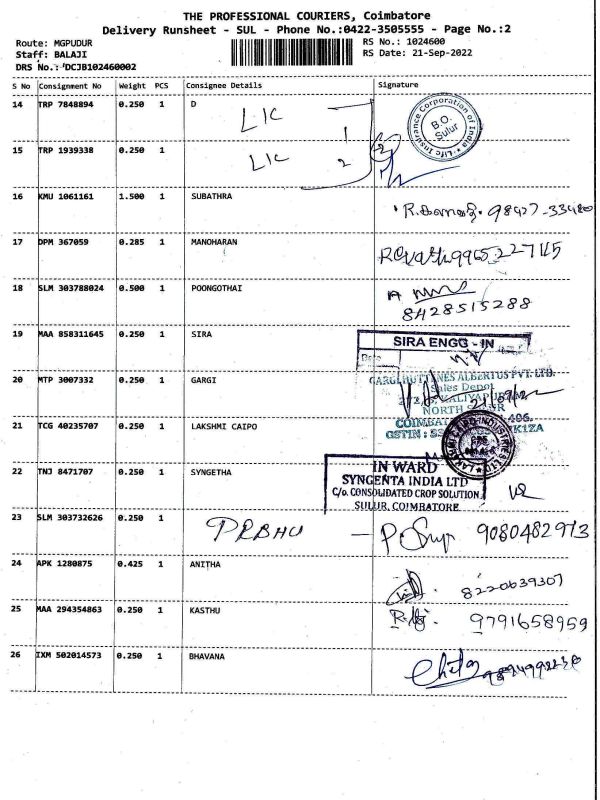 THE PROFESSIONAL COURIERS, Coimbatore
Delivery Runsheet - SUL - Phone No.:0422-3505555 - Page No.:2
Route: MGPUDUR RS No.: 1024600
Staff: BALAJI RS Date: 21-Sep-2022
DRS No.: DCJB102460002
S No Consignment No Weight PCS Consignee Details Signature
14 TRP 7848894 0.250 1 D
LIC 1
Life Insurance Corporation of India
B.O. Sulur
15 TRP 1939338 0.250 1
LIC 2
16 KMU 1061161 1.500 1 SUBATHRA
98427-33480
17 DPM 367059 0.285 1 MANOHARAN
18 SLM 303788024 0.500 1 POONGOTHAI
8428515288
19 MAA 858311645 0.250 1 SIRA
SIRA ENGG - IN
Date
20 MTP 3007332 0.250 1 GARGI
ALBERTUS PVT. LTD.
Sales Depot
NORTH
21 TCG 40235707 0.250 1 LAKSHMI CAIPO
GSTIN :
22 TNJ 8471707 0.250 1 SYNGETHA
IN WARD
SYNGENTA INDIA LTD
C/o. CONSOLIDATED CROP SOLUTION
SULUR, COIMBATORE
23 SLM 303732626 0.250 1 PRBHU 9080482973
24 APK 1280875 0.425 1 ANITHA
8220639307
25 MAA 294354863 0.250 1 KASTHU
9791658959
26 IXM 502014573 0.250 1 BHAVANA